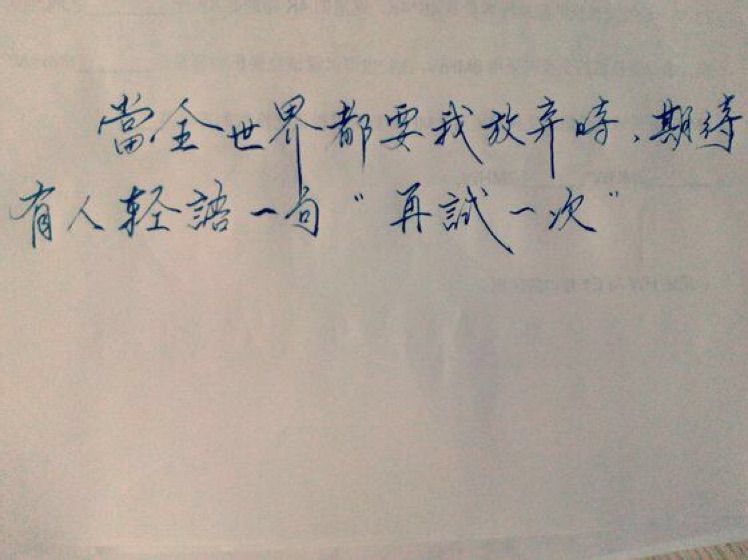 當全世界都要我放弃時,期待
有人輕語一句"再試一次"